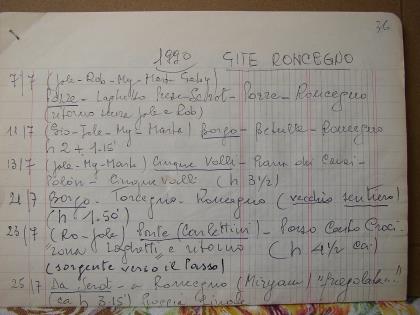 36
1990 GITE RONCEGNO
7/7 (Jole-Rob-My-Marta Gaby)
Pozze - Laghetto Prese - Serot - Pozze - Roncegno
(ritorno senza Jole e Rob)
11/7 (Gio-Jole-My-Marta) Borgo - - Roncegno
h 2 + 1.15'
13/7 (Jole-My-Marta) Cinque Valli - Piana dei Cavai -
- Cinque Valli (h 3½)
21/7 Borgo - Torcegno - Roncegno (vecchio sentiero)
(h 1.50')
23/7 (Ro-Jole) Ponte (Carlettini) - Passo Cinque Croci
zona Laghetti e ritorno (h 4½ ca)
(sorgente verso il Passo)
25/7 Da Serot - a Roncegno (Miryam) "
(ca h 3.15') Pioggia finale